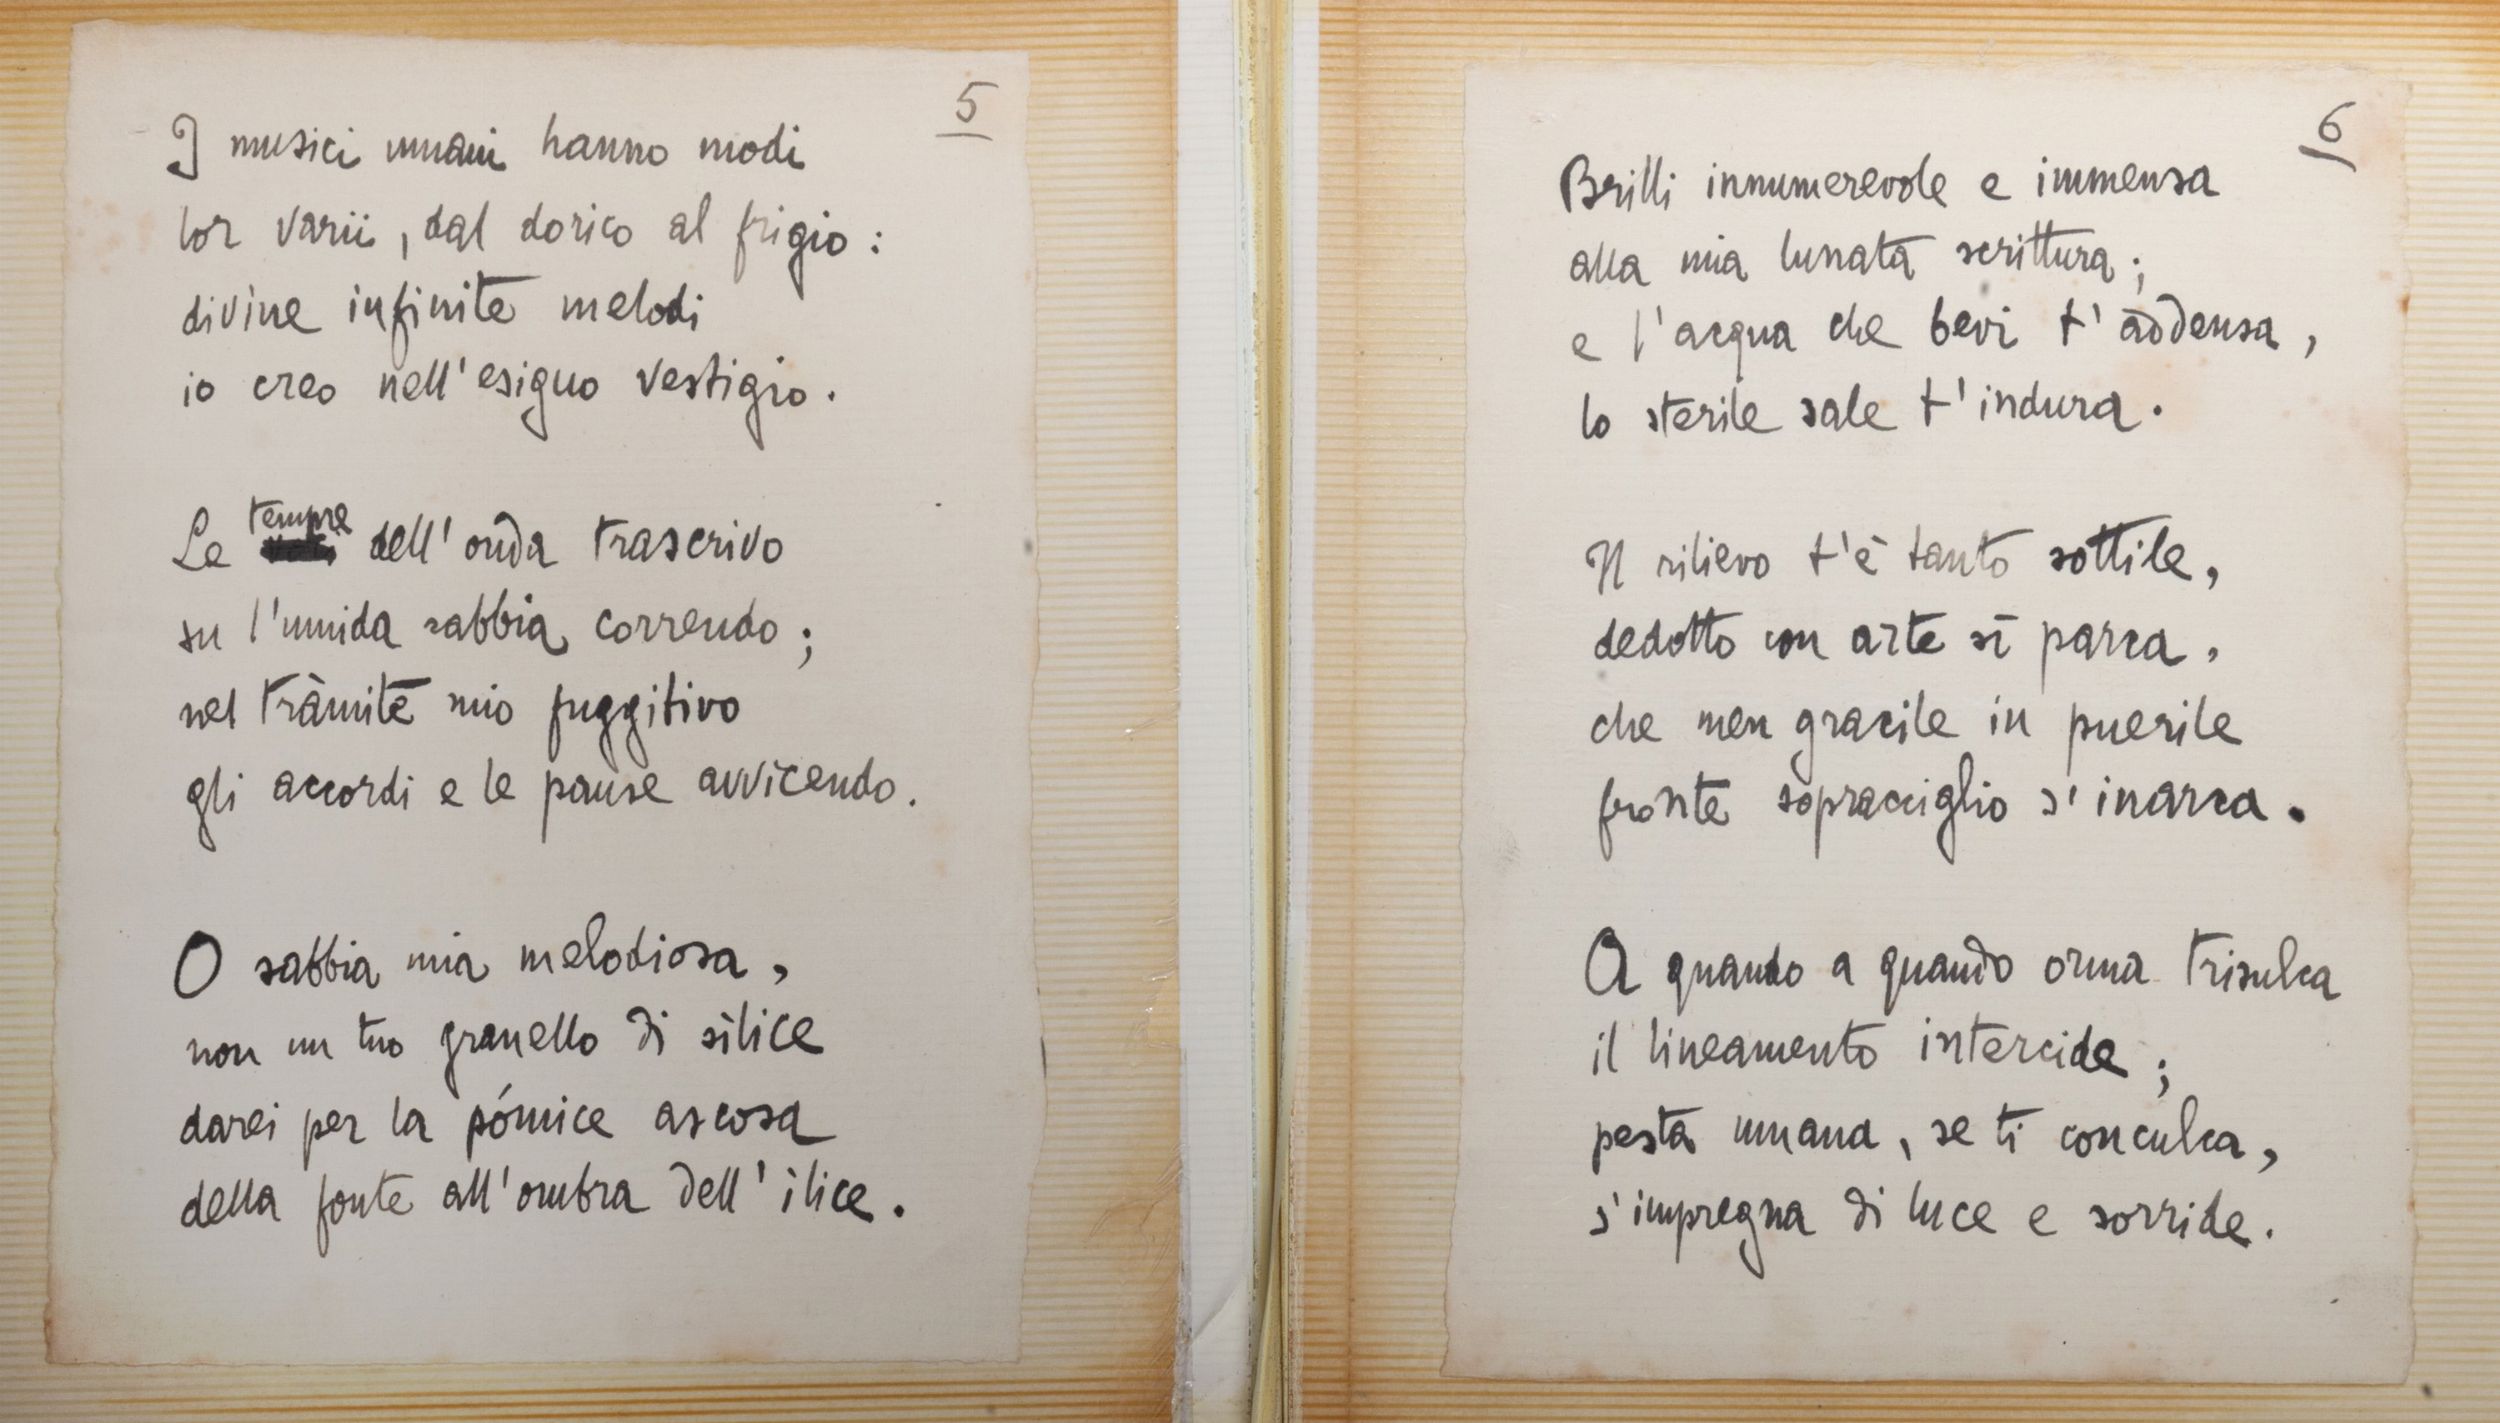 5
I musici umani hanno modi
lor varii, dal dorico al frigio:
divine infinite melodi
io creo nell'esiguo vestigio.
tempre
Le dell'onda trascrivo
su l'umida sabbia correndo;
nel tràmite mio fuggitivo
gli accordi e le pause avvicendo.
O sabbia mia melodiosa,
non un tuo granello di sìlice
darei per la pómice ascosa
della fonte all'ombra dell'ilice.
6
Brilli innumerevole e immensa
alla mia lunata scrittura;
e l'acqua che bevi t'addensa,
lo sterile sale t'indura.
Il rilievo t'è tanto sottile,
dedotto con arte sì parca,
che men gracile in puerile
fronte sopracciglio s'inarca.
A quando a quando orma trisulca
il lineamento intercide;
pesta umana, se ti conculca,
s'impregna di luce e sorride.